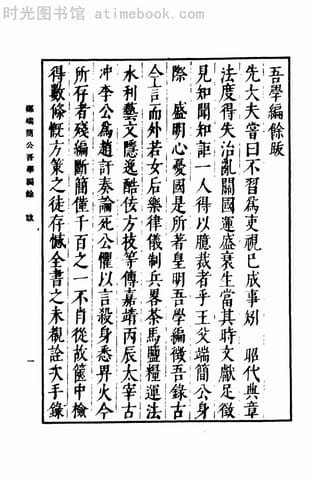 时光图书馆 atimebook.com
吾學編餘跋
先大夫嘗曰不習為吏視已成事矧　昭代典章
法度得失治亂關國運盛衰生當其時文獻足徵
見知聞知詎一人得以臆裁者乎王父端簡公身
際　盛明心憂國是所著皇明吾學編徵吾錄古
今言而外若女后樂律儀制兵畧茶馬鹽糧運法
水利藝文隱逸酷佞方技等傳嘉靖丙辰太宰古
冲李公為趙訐奏論死公懼以言殺身悉畀火今
所存者殘編斷簡僅千百之一不肖從故篋中檢
得數條慨方策之徒存憾全書之未覩詮次手錄
鄭端簡公吾學編餘　跋　一